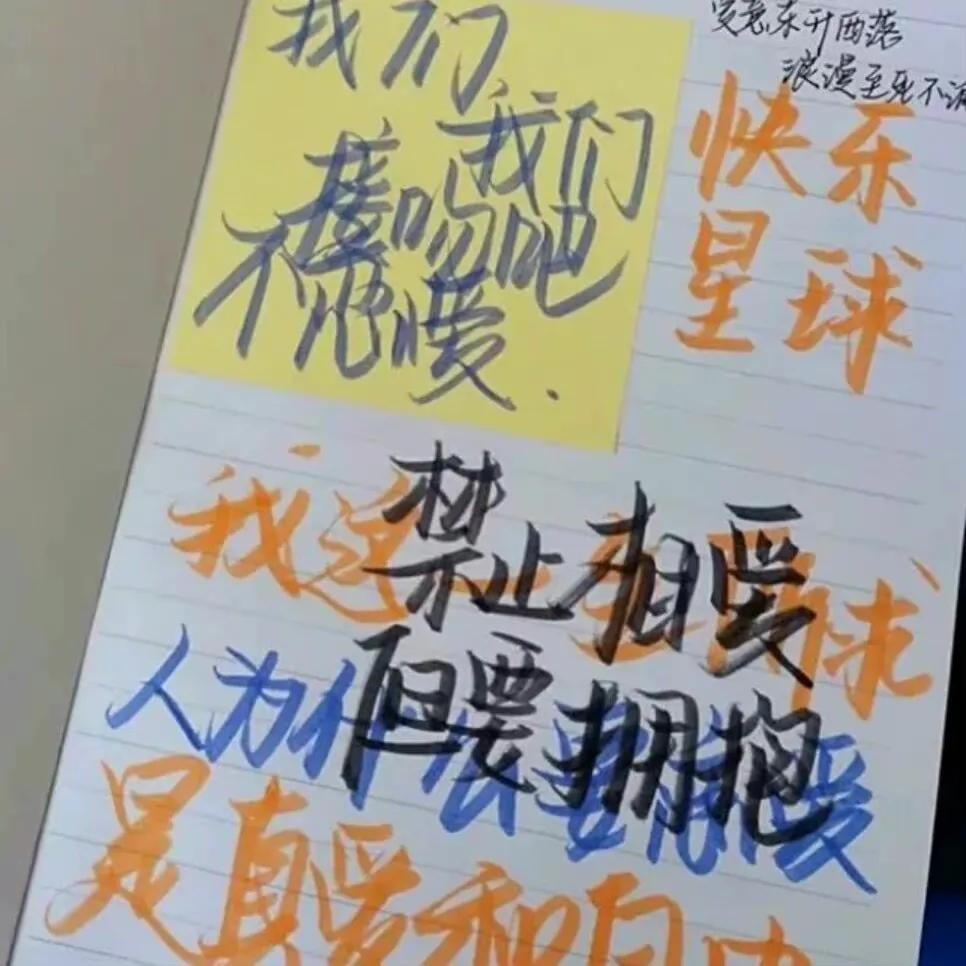 我们
我们
接吻吧
不恋爱.
爱意东升西落
浪漫至死不渝
快乐
星球
禁止相爱
但要拥抱
我
球
人为什 要 爱
是真爱和自由